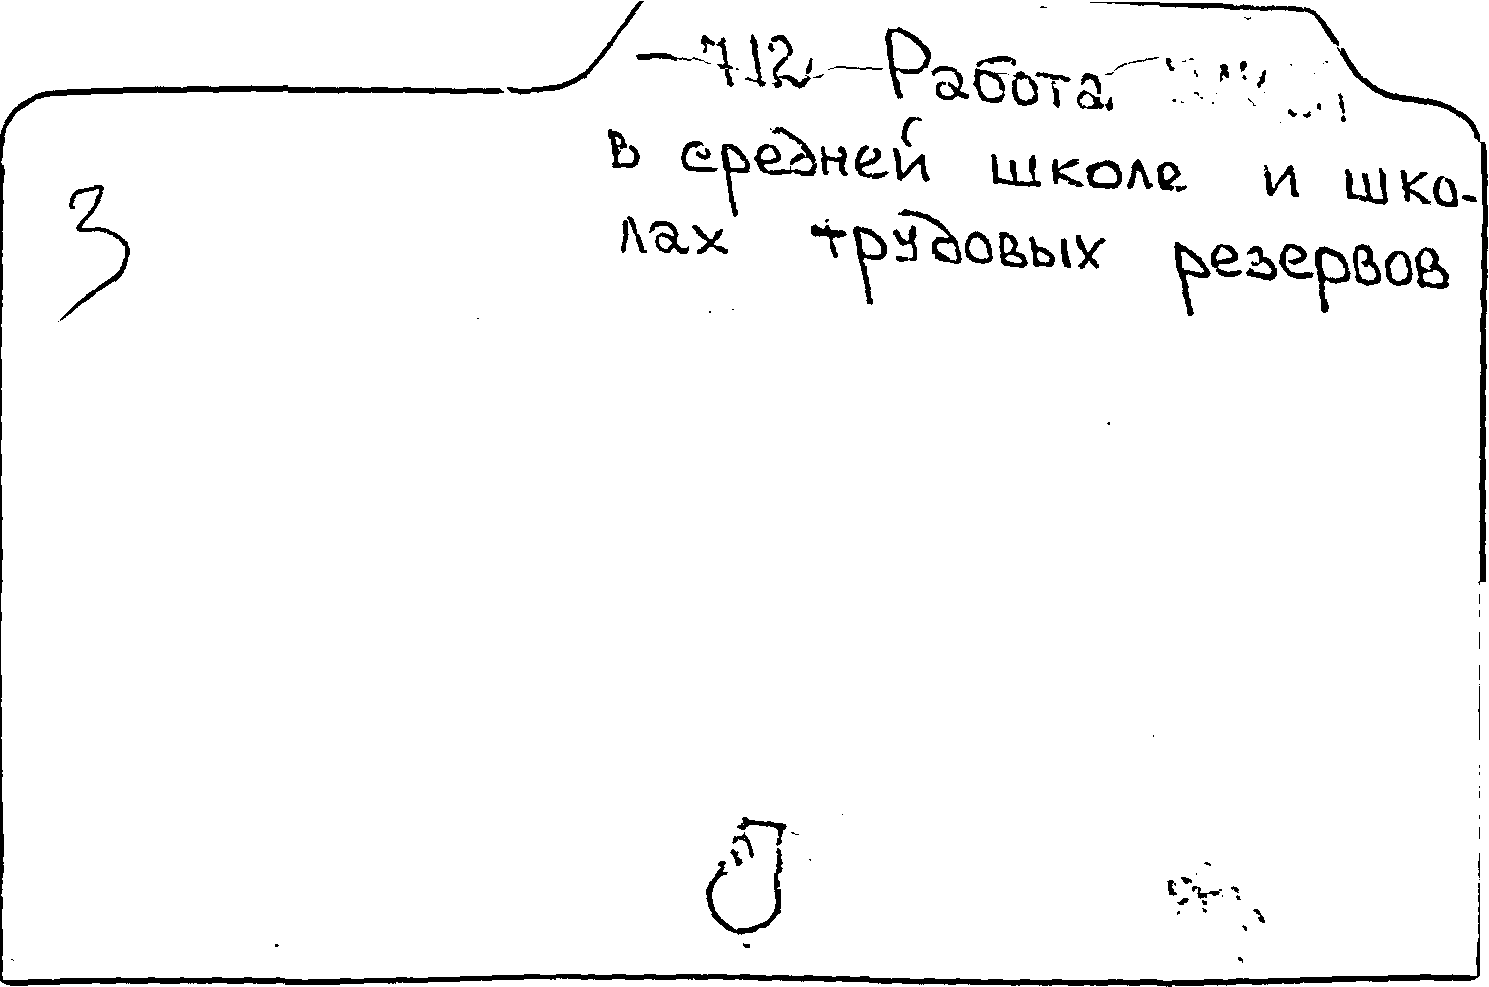 —712 Работа
в средней школе и шко-
лах трудовых резервов
3